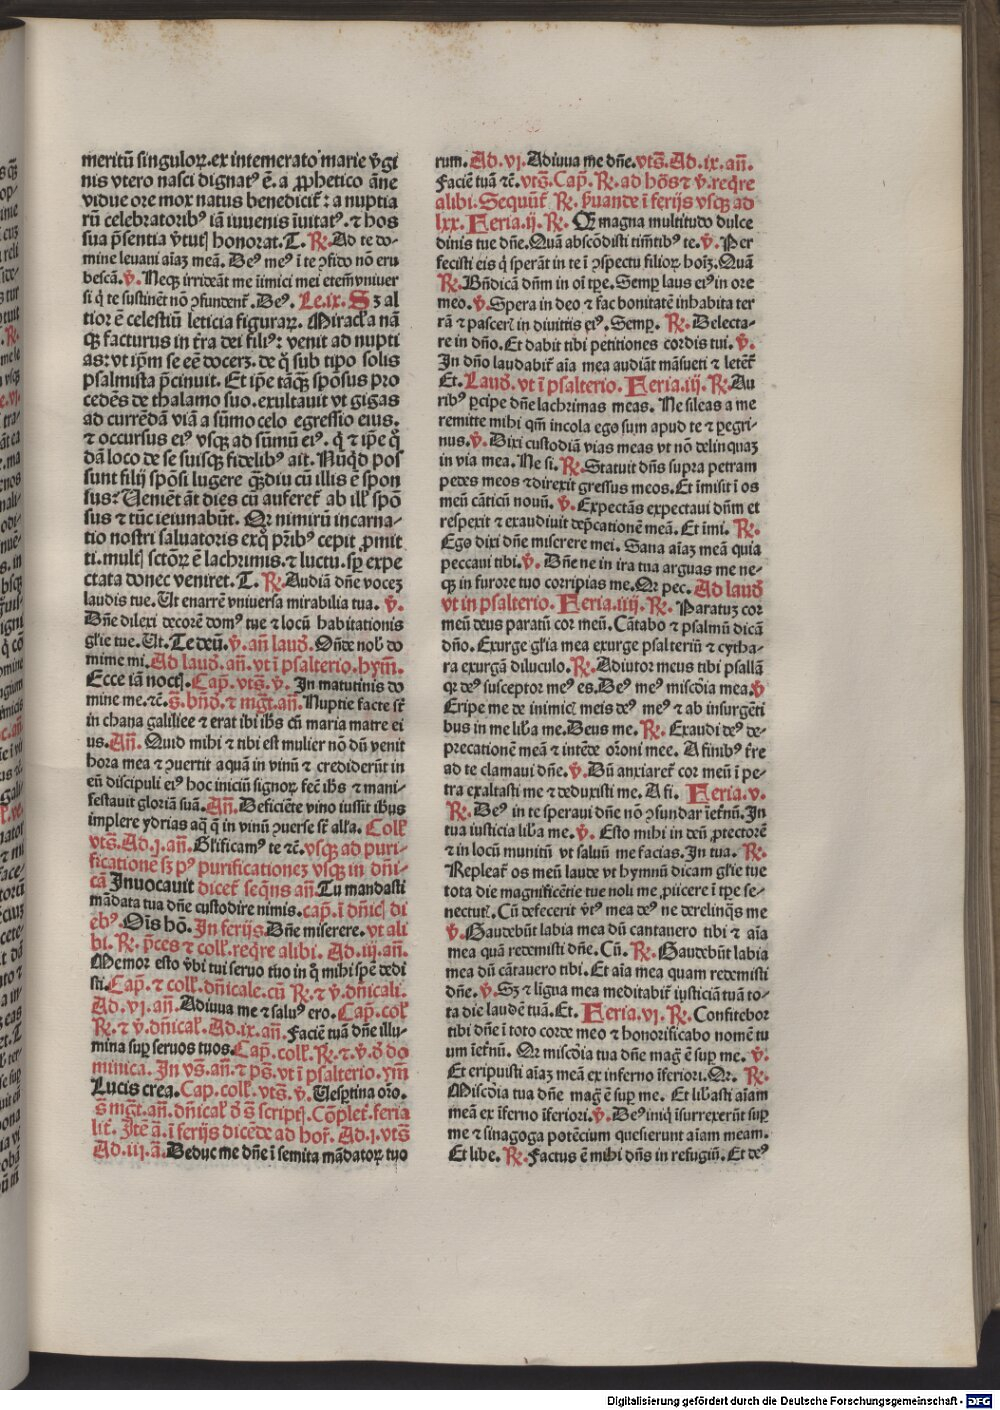 meritũ singuloꝝ. ex intemerato marie v̄gi
nis vtero nasci dignatꝰ ē. a ꝓphetico āne
vidue ore mox natus benedicit᷑: a nuptia
rũ celebratoribꝰ iā iuvenis ĩuitatꝰ. ⁊ hos
sua p̄sentia v̓tutꝭ honorat. T. R. Ad te do-
mine levani aīaʒ meā. Deꝰ meꝰ ĩ te ꝯfido nō eru
bescā. ṽ. Neqꝫ irrideāt me iimici mei etem̄ vniver
si q̇ te sustinēt nō ꝯfundent᷑. Deꝰ. Le. ix. Sʒ al
tior ē celestiũ leticia figuraꝝ. Miracl̓a nā
qꝫ facturus in t̄ra dei filiꝰ: venit ad nupti
as: vt ip̄m se eē docerʒ. de q̇ sub tipo solis
psalmista p̄cinuit. Et ip̄e tāqꝫ spōsus pro
cedēs de thalamo suo. exultauit vt gigas
ad currēdā viā a sũmo celo egressio eius.
⁊ occursus eiꝰ vsqꝫ ad sũmũ eiꝰ. q̇ ⁊ ip̄e q̊
dā loco de se suisqꝫ fidelibꝰ ait. Nũqd̓ pos
sunt filij spōsi lugere qꝫdiu cũ illis ē spon
sus: Veniēt āt dies cũ auferet᷑ ab ill̓ spō
sus ⁊ tũc ieiunabũt. Qꝛ nimirũ incarna-
tio nostri saluatoris exq̊ pr̄ibꝰ cepit ꝓmit
ti. multꝭ sctōꝝ ē lachrimis. ⁊ luctu. sꝑ expe
ctata donec veniret. T. R. Audiā dn̄e voceʒ
laudis tue. Ut enarrē vniversa mirabilia tua. ṽ.
Dn̄e dilexi decorē domꝰ tue ⁊ locũ habitationis
gl̓ie tue. Ut. Te deũ. ṽ. an̄ laud̓. On̄de nob̓ do
mine mi. Ad laud̓. an̄. vt ĩ psalterio. hym̄.
Ecce iā noctꝭ. Cap̄. vts̄. ṽ. In matutinis do
mine me. ⁊c̄. s̄. bn̄d̓. ⁊ mgt̄. an̄. Nuptie facte st᷑
in chana galilee ⁊ erat ibi ih̄s cũ maria matre ei
us. An̄. Quid mihi ⁊ tibi est mulier nō dũ venit
hora mea ⁊ ꝯvertit aquā in vinũ ⁊ crediderũt in
eũ discipuli eiꝰ hoc iniciũ signoꝝ fec̄ ih̄s ⁊ mani-
festauit gloriā suā. An̄. Deficiēte vino iussit ih̄us
implere ydrias aq̄ q̄ in vinũ ꝯuerse st᷑ all̓a. Coll̓
vts̄. Ad. j. an̄. Gl̓ificamꝰ te ⁊c̄. vsqꝫ ad puri-
ficationē sʒ pꝰ purificationeʒ vsqꝫ in dn̄i-
cā Invocauit dicet᷑ seq̄ns an̄. Tu mandasti
mādata tua dn̄e custodire nimis. cap̄. ĩ dn̄icꝭ di
ebꝰ. Oīs hō. In ferijs. Dn̄e miserere. vt ali
bi. R. p̄ces ⁊ coll̓. req̄re alibi. Ad. iij. an̄.
Memor esto v̓bi tui seruo tuo in q̊ mihi spē dedi
sti. Cap̄. ⁊ coll̓. dn̄icale. cũ R. ⁊ ṽ. dn̄icali.
Ad. vj. an̄. Adiuua me ⁊ saluꝰ ero. Cap̄. coll̓
R. ⁊ ṽ. dn̄ical̓. Ad. ix. an̄. Faciē tuā dn̄e illu-
mina suꝑ seruos tuos. Cap̄. coll̓. R. ⁊ ṽ. d̓ do
minica. In vs̄. an̄. ⁊ ps̄. vt ĩ psalterio. ym̄
Lucis crea. Cap. coll̓. vts̄. ṽ. Vesp̄tina oro̅.
s̄ mgt̄. an̄. dn̄ical̓ d̓ s̄ scriptꝭ. Cōplet᷑. feria
lit᷑. Itē ā. ĩ ferijs dicēde ad hor᷑. Ad. j. vts̄
Ad. iij. ā. Deduc me dn̄e ĩ semita mādatoꝝ tuo
rum. Ad. vj. Adiuua me dn̄e. vts̄. Ad. ix. an̄.
Faciē tuā ⁊c̄. vts̄. Cap̄. R. ad hōs ⁊ ṽ. req̄re
alibi. Sequũt᷑ R. p̓uande ĩ ferijs vsqꝫ ad
lxx. Feria. ij. R. Qꝫ magna multitudo dulce
dinis tue dn̄e. Quā abscōdisti tim̄tibꝰ te. ṽ. Per
fecisti eis q̇ sperāt in te ĩ ꝯspectu filioꝝ hoīʒ. Quā
R. Bn̄dicā dn̄m in oī tꝑe. Semꝑ laus eiꝰ in ore
meo. ṽ. Spera in deo ⁊ fac bonitatē inhabita ter
rā ⁊ pascerꝭ in diuitiis eiꝰ. Semꝑ. R. Delecta-
re in dn̄o. Et dabit tibi petitiones cordis tui. ṽ.
In dn̄o laudabit᷑ aīa mea audiāt māsueti ⁊ letēt᷑
Et. Laud̓. vt ĩ psalterio. Feria. iij. R. Au
ribꝰ ꝑcipe dn̄e lachrimas meas. Ne sileas a me
remitte mihi qm̄ incola ego sum apud te ⁊ ꝑegri-
nus. ṽ. Dixi custodiā vias meas vt nō delinquaʒ
in via mea. Ne si. R. Statuit dn̄s supra petram
pedes meos ⁊ direxit gressus meos. Et ĩmisit ĩ os
meũ cāticũ nouũ. ṽ. Expectās expectaui dn̄m et
respexit ⁊ exaudiuit dep̄catiōnē meā. Et ĩmi. R.
Ego dixi dn̄e miserere mei. Sana aīaʒ meā quia
peccaui tibi. ṽ. Dn̄e ne in ira tua arguas me ne-
qꝫ in furore tuo corripias me. Qꝛ pec. Ad laud̓
vt in psalterio. Feria. iiij. R. Paratuʒ cor
meũ deus paratũ cor meũ. Cātabo ⁊ psalmũ dicā
dn̄o. Exurge gl̓ia mea exurge psalteriũ ⁊ cytha-
ra exurgā diluculo. R. Adiutor meus tibi psallā
qꝛ deꝰ susceptor meꝰ es. Deꝰ meꝰ misc̄dia mea. ṽ
Eripe me de inimicꝭ meis deꝰ meꝰ ⁊ ab insurgēti
bus in me lib̓a me. Deus me. R. Exaudi deꝰ de-
precationē meā ⁊ intēde or̄oni mee. A finibꝰ t̄re
ad te clamaui dn̄e. ṽ. Dũ anxiaret᷑ cor meũ ĩ pe-
tra exaltasti me ⁊ deduxisti me. A fi. Feria. v.
R. Deꝰ in te speraui dn̄e nō ꝯfundar ĩet᷑nũ. In
tua iusticia lib̓a me. ṽ. Esto mihi in deũ ꝓtectorē
⁊ in locũ munitũ vt saluũ me facias. In tua. R.
Repleat᷑ os meũ laude vt hymnũ dicam gl̓ie tue
tota die magnificētie tue noli me ꝓiicere ĩ tꝑe se-
nectutꝭ. Cũ defecerit v̓tꝰ mea deꝰ ne derelinq̄s me
ṽ. Gaudebũt labia mea dũ cantauero tibi ⁊ aīa
mea quā redemisti dn̄e. Cũ. R. Gaudebũt labia
mea dũ cātauero tibi. Et aīa mea quam redemisti
dn̄e. ṽ. Sʒ ⁊ lĩgua mea meditabit᷑ iusticiā tuā to-
ta die laudē tuā. Et. Feria. vj. R. Confitebor
tibi dn̄e ĩ toto corde meo ⁊ honorificabo nomē tu
um ĩet᷑nũ. Qꝛ misc̄dia tua dn̄e maḡ ē suꝑ me. ṽ.
Et eripuisti aīaʒ meā ex inferno ĩferiori. Qꝛ. R.
Misc̄dia tua dn̄e maḡ ē suꝑ me. Et lib̓asti aīam
meā ex ĩferno ĩferiori. ṽ. Deꝰ iniq̇ ĩsurrexerũt suꝑ
me ⁊ sinagoga potēcium quesierunt aīam meam.
Et libe. R. Factus ē mihi dn̄s in refugiũ. Et deꝰ
Digitalisierung gefördert durch die Deutsche Forschungsgemeinschaft - DFG